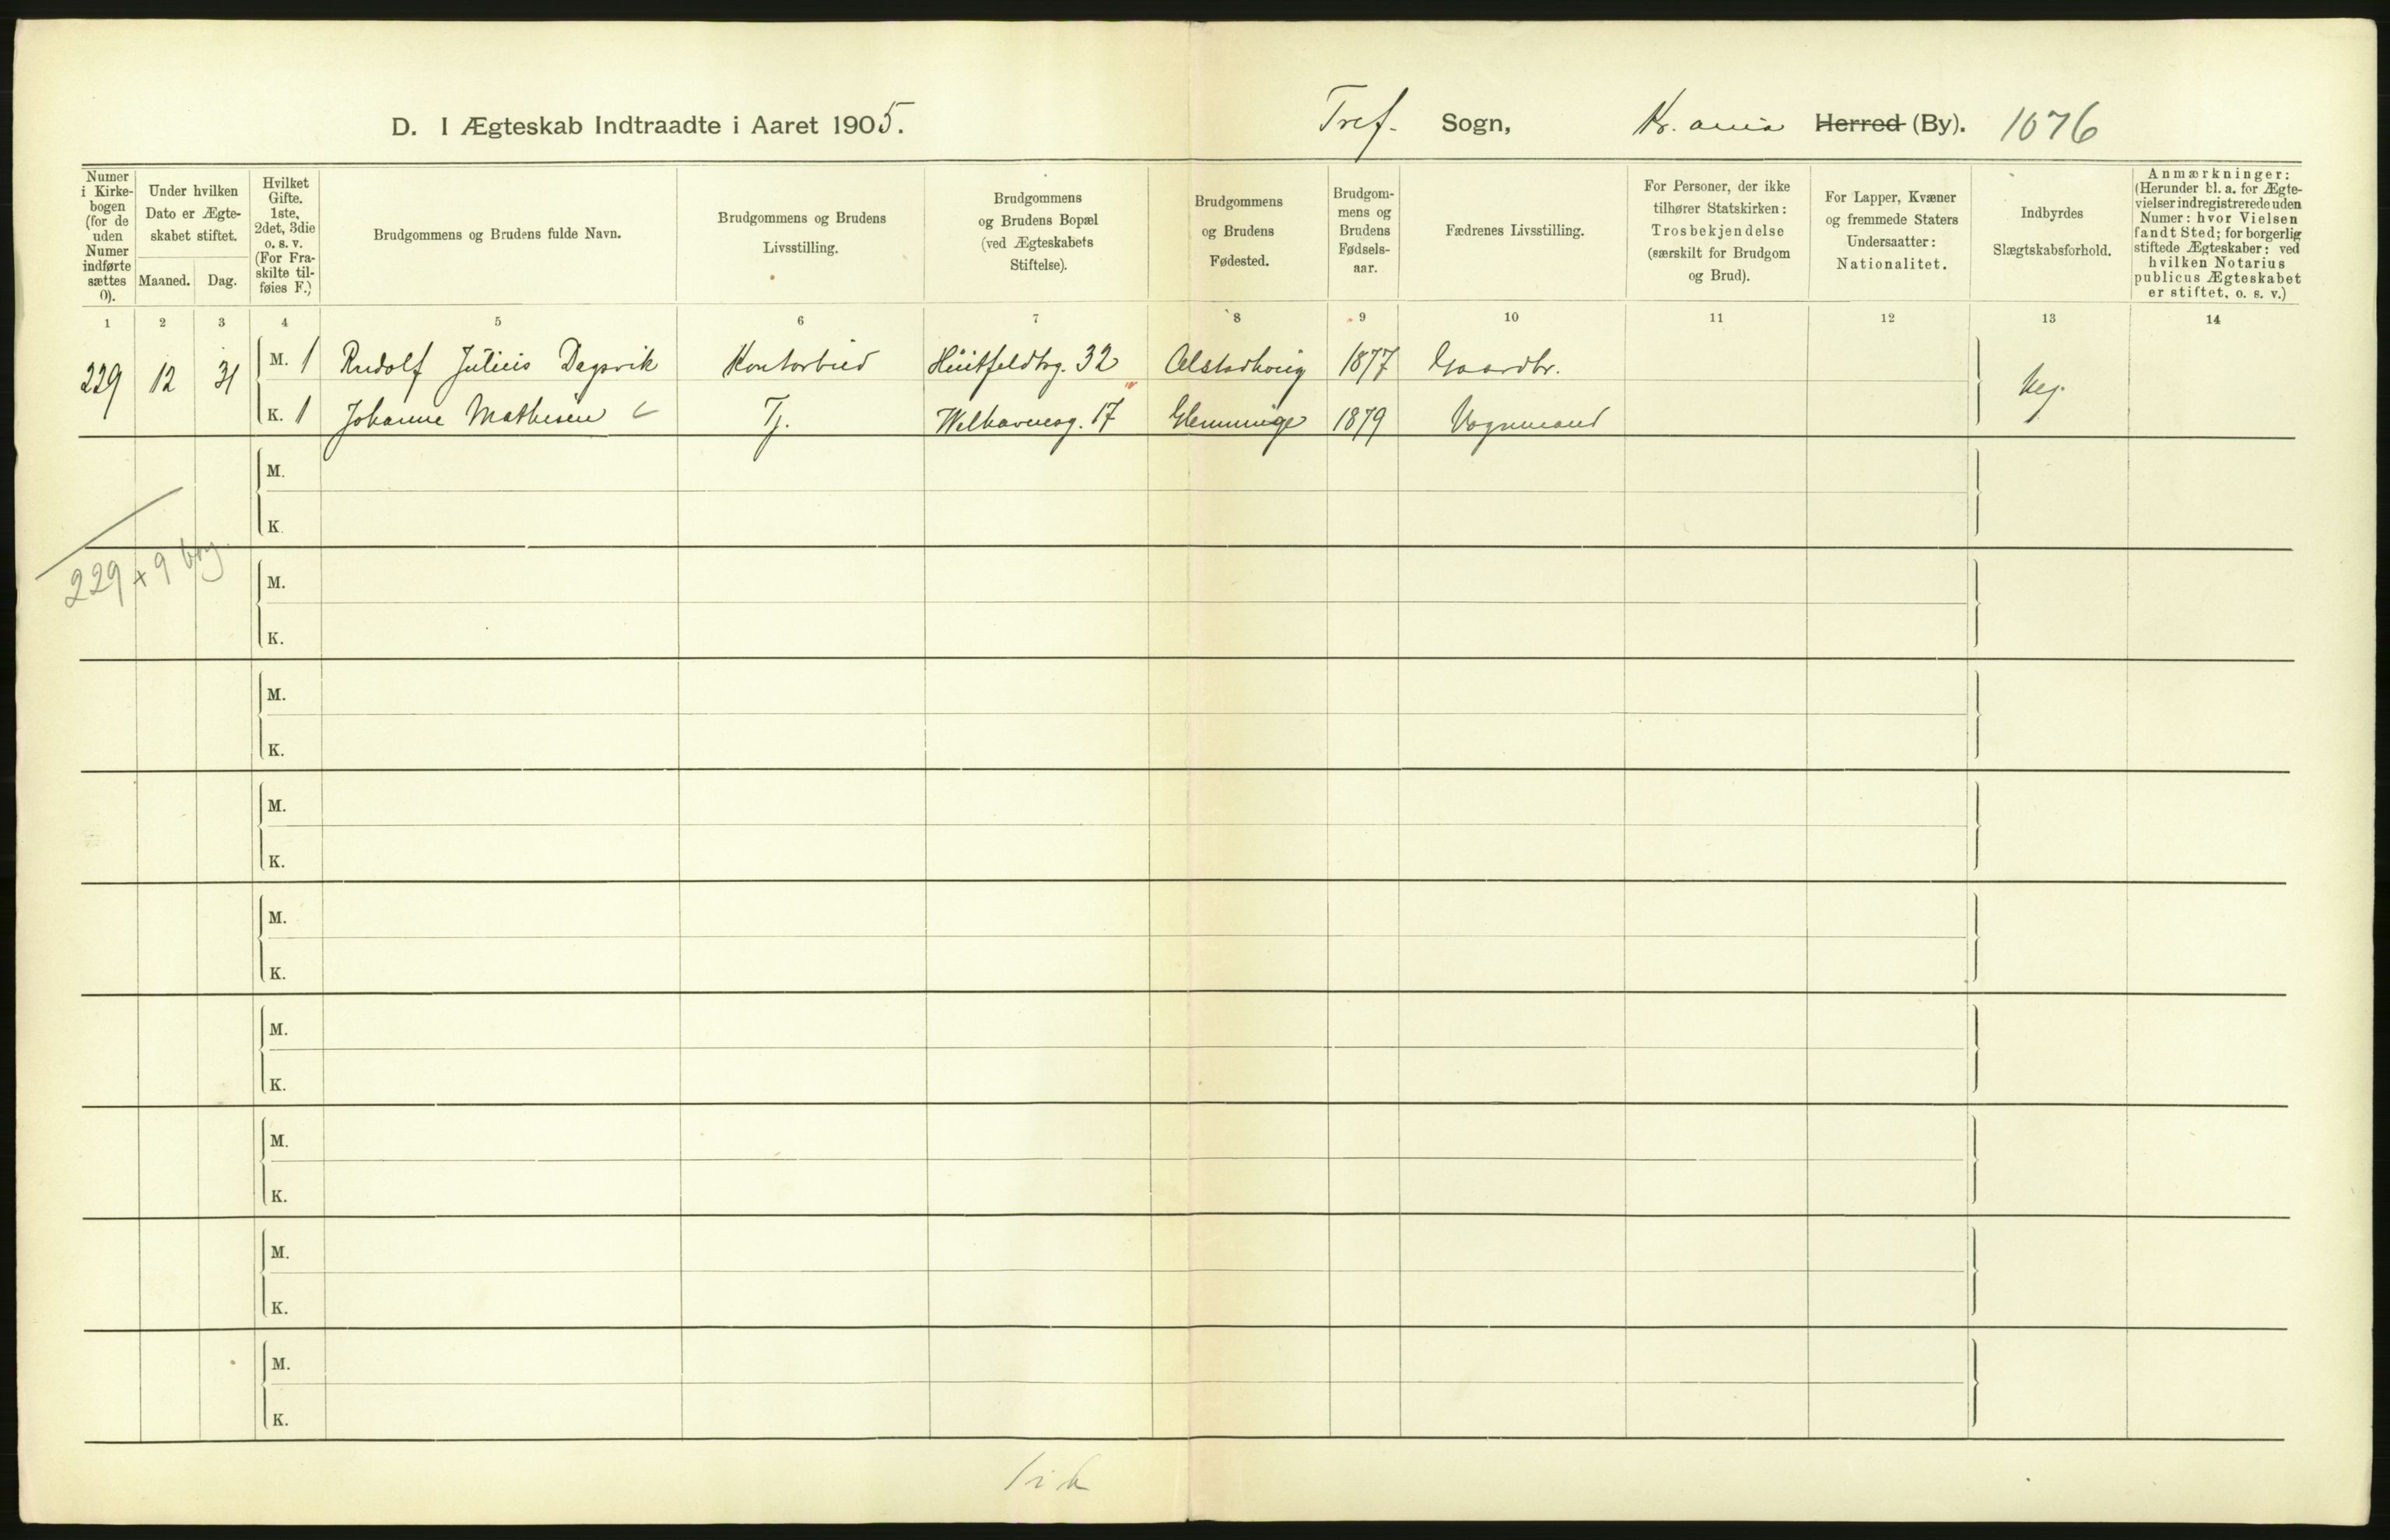 D. I Ægteskab Indtraadte i Aaret 1905.
Tref. Sogn, Kr.ania Herred (By). 1076
Numer i Kirkebogen (for de uden Numer indførte sættes 0).
Under hvilken Dato er Ægteskabet stiftet.
Maaned. Dag.
Hvilket Gifte. 1ste, 2det, 3die o. s. v. (For Fraskilte tilføies F.)
Brudgommens og Brudens fulde Navn.
Brudgommens og Brudens Livsstilling.
Brudgommens og Brudens Bopæl (ved Ægteskabets Stiftelse).
Brudgommens og Brudens Fødested.
Brudgommens og Brudens Fødselsaar.
Fædrenes Livsstilling.
For Personer, der ikke tilhører Statskirken: Trosbekjendelse (særskilt for Brudgom og Brud).
For Lapper, Kvæner og fremmede Staters Undersaatter: Nationalitet.
Indbyrdes Slægtskabsforhold.
Anmærkninger: (Herunder bl. a. for Ægtevielser indregistrerede uden Numer: hvor Vielsen fandt Sted; for borgerlig stiftede Ægteskaber: ved hvilken Notarius publicus Ægteskabet er stiftet, o. s. v.)
1 2 3 4 5 6 7 8 9 10 11 12 13 14
229 12 31 M. 1 Rudolf Julius Dagsvik Kontorbud Huitfeldtsg. 32 Alstadhoug 1877 Gaardbr. Nej.
K. 1 Johanne Mathisen Tj. Welhavensg. 17 Glemminge 1879 Vognmand
M.
K.
229 + 9 brg.
M.
K.
M.
K.
M.
K.
M.
K.
M.
K.
M.
K.
M.
K.
M.
K.